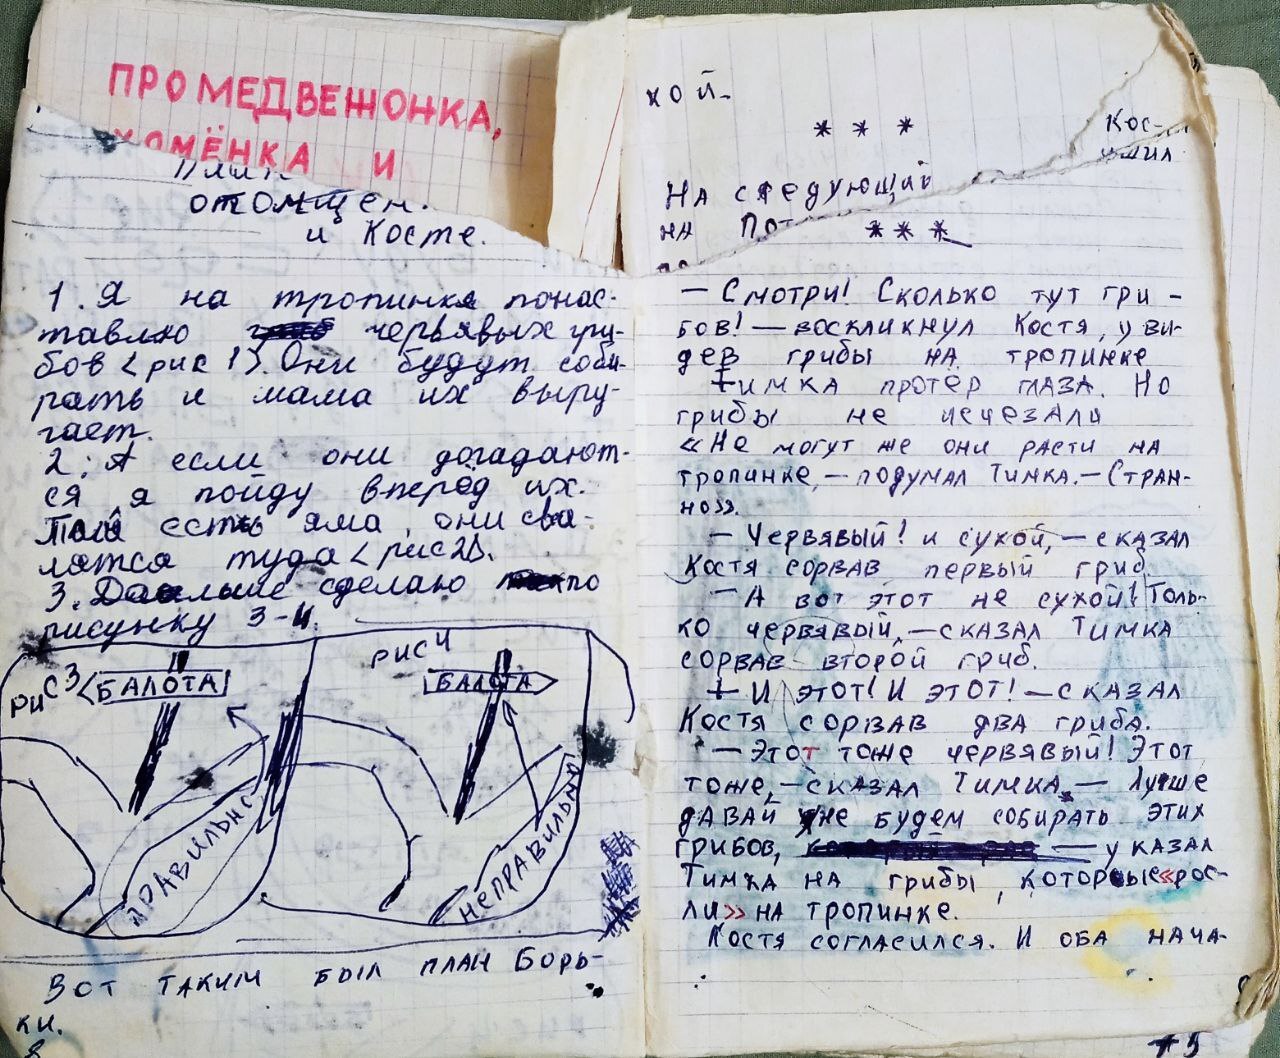 ПРО МЕДВЕЖОНКА,
ХОМЁНКА И
отомщен.
и Косте.
1. Я на тропинке понас-
тавлю червявых гри-
бов <рис 1>. Они будут соби-
рать и мама их выру-
гает.
2. А если они догадают-
ся я пойду вперёд их.
Там есть яма, они сва-
лятся туда <рис 2>.
3. Дальше сделаю по
рисунку 3-4.
РИС 3
БАЛОТА
ПРАВИЛЬНО
РИС 4
БАЛОТА
НЕПРАВИЛЬНО
Вот таким был план Борь-
ки.
8
кой.
* * *
Кос-
На следующий
на
* * *
— Смотри! Сколько тут гри-
бов! — воскликнул Костя, уви-
дев грибы на тропинке
Тимка протёр глаза. Но
грибы не исчезали
«Не могут же они расти на
тропинке, — подумал Тимка. — Стран-
но».
— Червявый! и сухой, — сказал
Костя сорвав первый гриб.
— А вот этот не сухой! Толь-
ко червявый, — сказал Тимка
сорвав второй гриб.
— И этот! И этот! — сказал
Костя сорвав два гриба.
— Этот тоже червявый! Этот
тоже, — сказал Тимка, — Лучше
давай не будем собирать этих
грибов, — указал
Тимка на грибы, которые «рос-
ли» на тропинке.
Костя согласился. И оба нача-